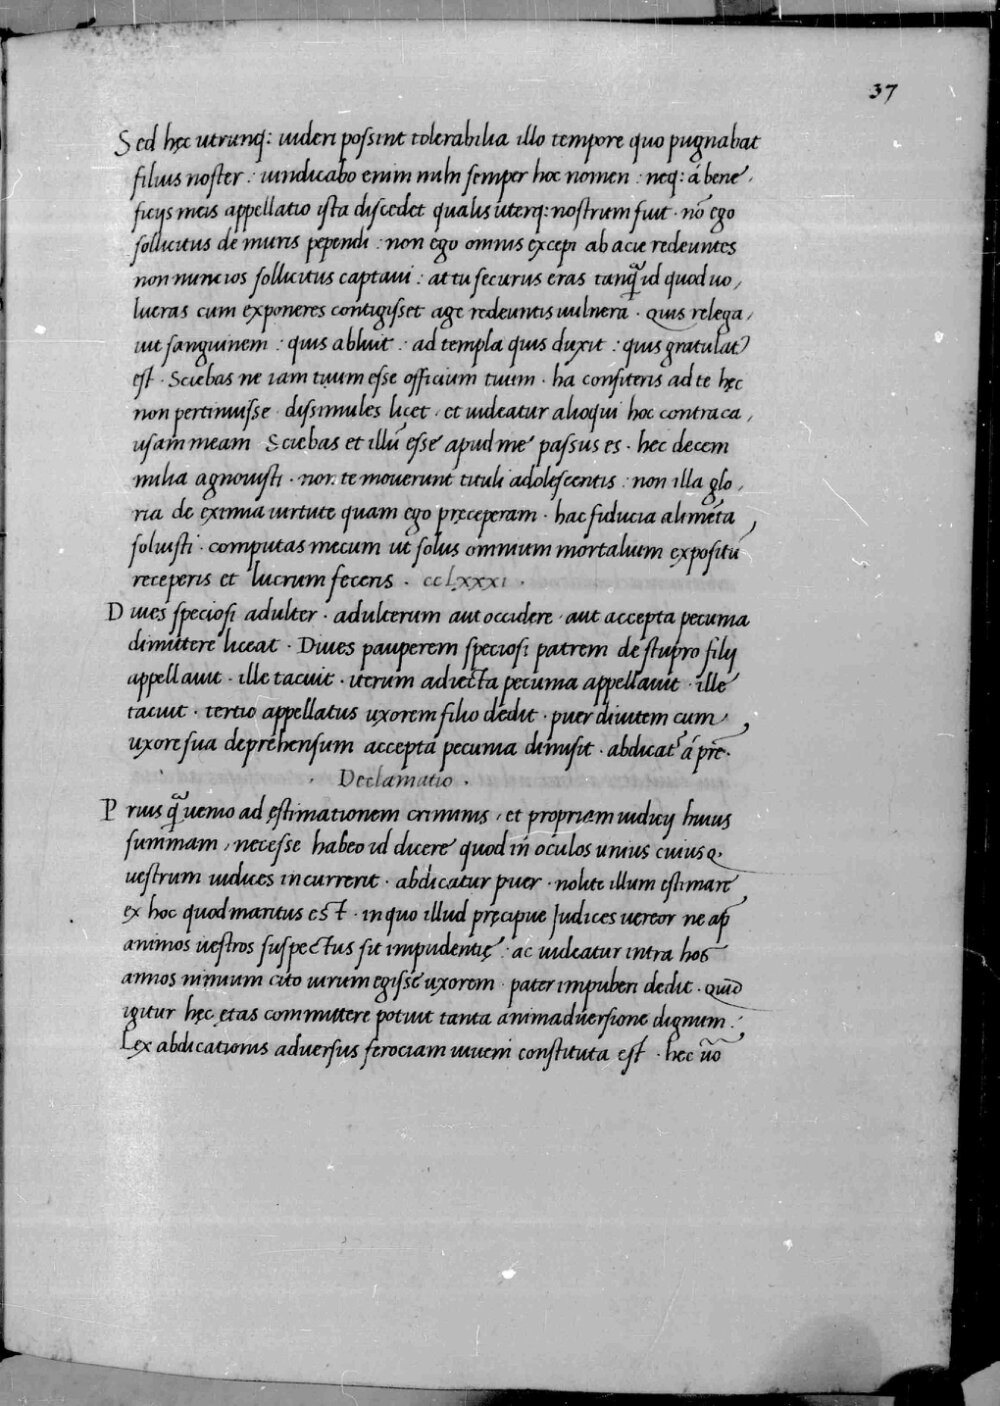 37
Sed hęc utrunq: uideri possint tolerabilia illo tempore quo pugnabat
filius noster : uindicabo enim mihi semper hoc nomen : neq: á bene,
ficijs meis appellatio ista discedet qualis uterq: nostrum fuit · nō ego
sollicitus de muris pependi : non ego omnis excepi ab acie redeuntes
non nuncios sollicitus captaui : at tu securus eras tanq̃ id quod uo,
lueras cum exponeres contigisset age redeuntis uulnera · quis relega,
uit sanguinem : quis abluit : ad templa quis duxit : quis gratulat
est · Sciebas ne iam tuum esse officium tuum · ha confiteris ad te hęc
non pertinuisse · dissimules licet · et uideatur alioqui hoc contra ca,
usam meam Sciebas et illũ esse apud me passus es · hec decem
milia agnouisti · non te mouerunt tituli adolescentis : non illa glo,
ria de eximia uirtute quam ego pręceperam · hac fiducia alimēta
soluisti · computas mecum ut solus omnium mortalium expositũ
receperis et lucrum feceris · ccLxxxi ·
Diues speciosi adulter · adulterum aut occidere · aut accepta pecunia
dimittere liceat · Diues pauperem speciosi patrem de stupro filij
appellauit · ille tacuit · iterum adiecta pecunia appellauit · ille
tacuit · tertio appellatus uxorem filio dedit · puer diuitem cum
uxore sua deprehensum accepta pecunia dimisit · abdicat᷑ á pr̄e ·
· Declamatio ·
Prius q̃ uenio ad ęstimationem criminis, et propriam iudicij huius
summam, necesse habeo id dicere quod in oculos unius cuiusq·
uestrum iudices incurrerit · abdicatur puer · nolite illum estimare
ex hoc quod maritus est · in quo illud pręcipue Judices uereor ne ap̄
animos uestros suspectus sit impudentię : ac uideatur intra hos
annos nimium cito uirum egisse uxorem · pater impuberi dedit · quid
igitur hęc ętas committere potuit tanta animaduersione dignum :
Lex abdicationis aduersus ferociam iuueni constituta est · hec ũo